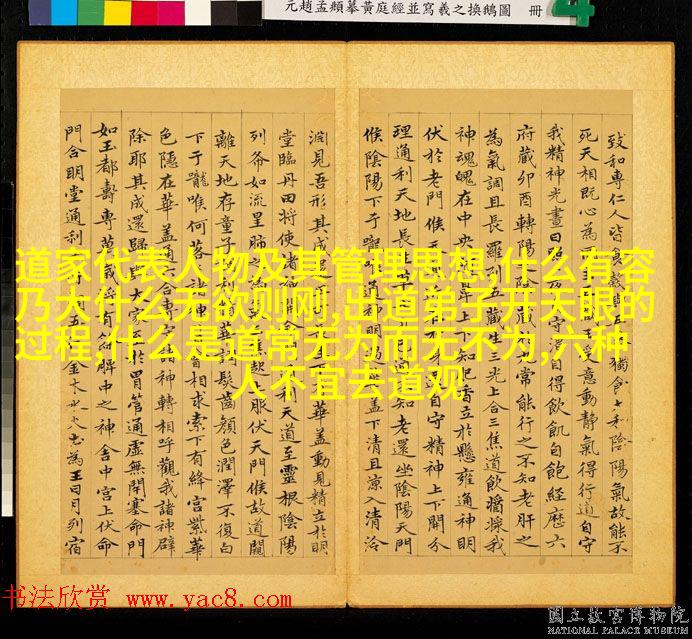 元趙孟頫摹黃庭經並寫羲之換鵝圖 冊
致和専仁人皆食穀與獨食太和陰陽氣故能不
死天相既心為意動靜氣得行道自守
我精神光晝日自得飲飢自飽經歷六
府藏卯酉轉陽之陰藏常能行之不知老肝之
為氣調且長羅列五藏生三光上合三焦道飲醬漿我
神魂魄在中央鼻上下知肥香立於懸雍通神明
伏於老門候天自守精神上下開分
理通利天地長生知老還坐陰陽天門
候陰陽下于嚨通神明蓋下清且涼入清泠
淵見吾形其成華蓋動見精立於明
堂臨丹田將使諸開利天道至靈根陰陽
列布如流星肺之為上服伏天門候故道闚
離天地存童子調髮齒顏色潤澤不復白
下于嚨喉何落諸神相求索下有絳宮紫華
色隱在華蓋通六合專諸神轉相呼觀我諸神辟
除耶其成還歸大家於胃管通虛無閉塞命門
如玉都壽專萬歲將有餘脾中之神舍中宮上伏命
門合明堂通利五金木水火土為王日月列宿
道家代表人物及其管理思想,什么有容
乃大什么无欲则刚,出道弟子开天眼的
过程,什么是道常无为而无不为,六种
人不宜去道观
书法欣赏 www.yac8.com
國立故宮博物院
NATIONAL PALACE MUSEUM